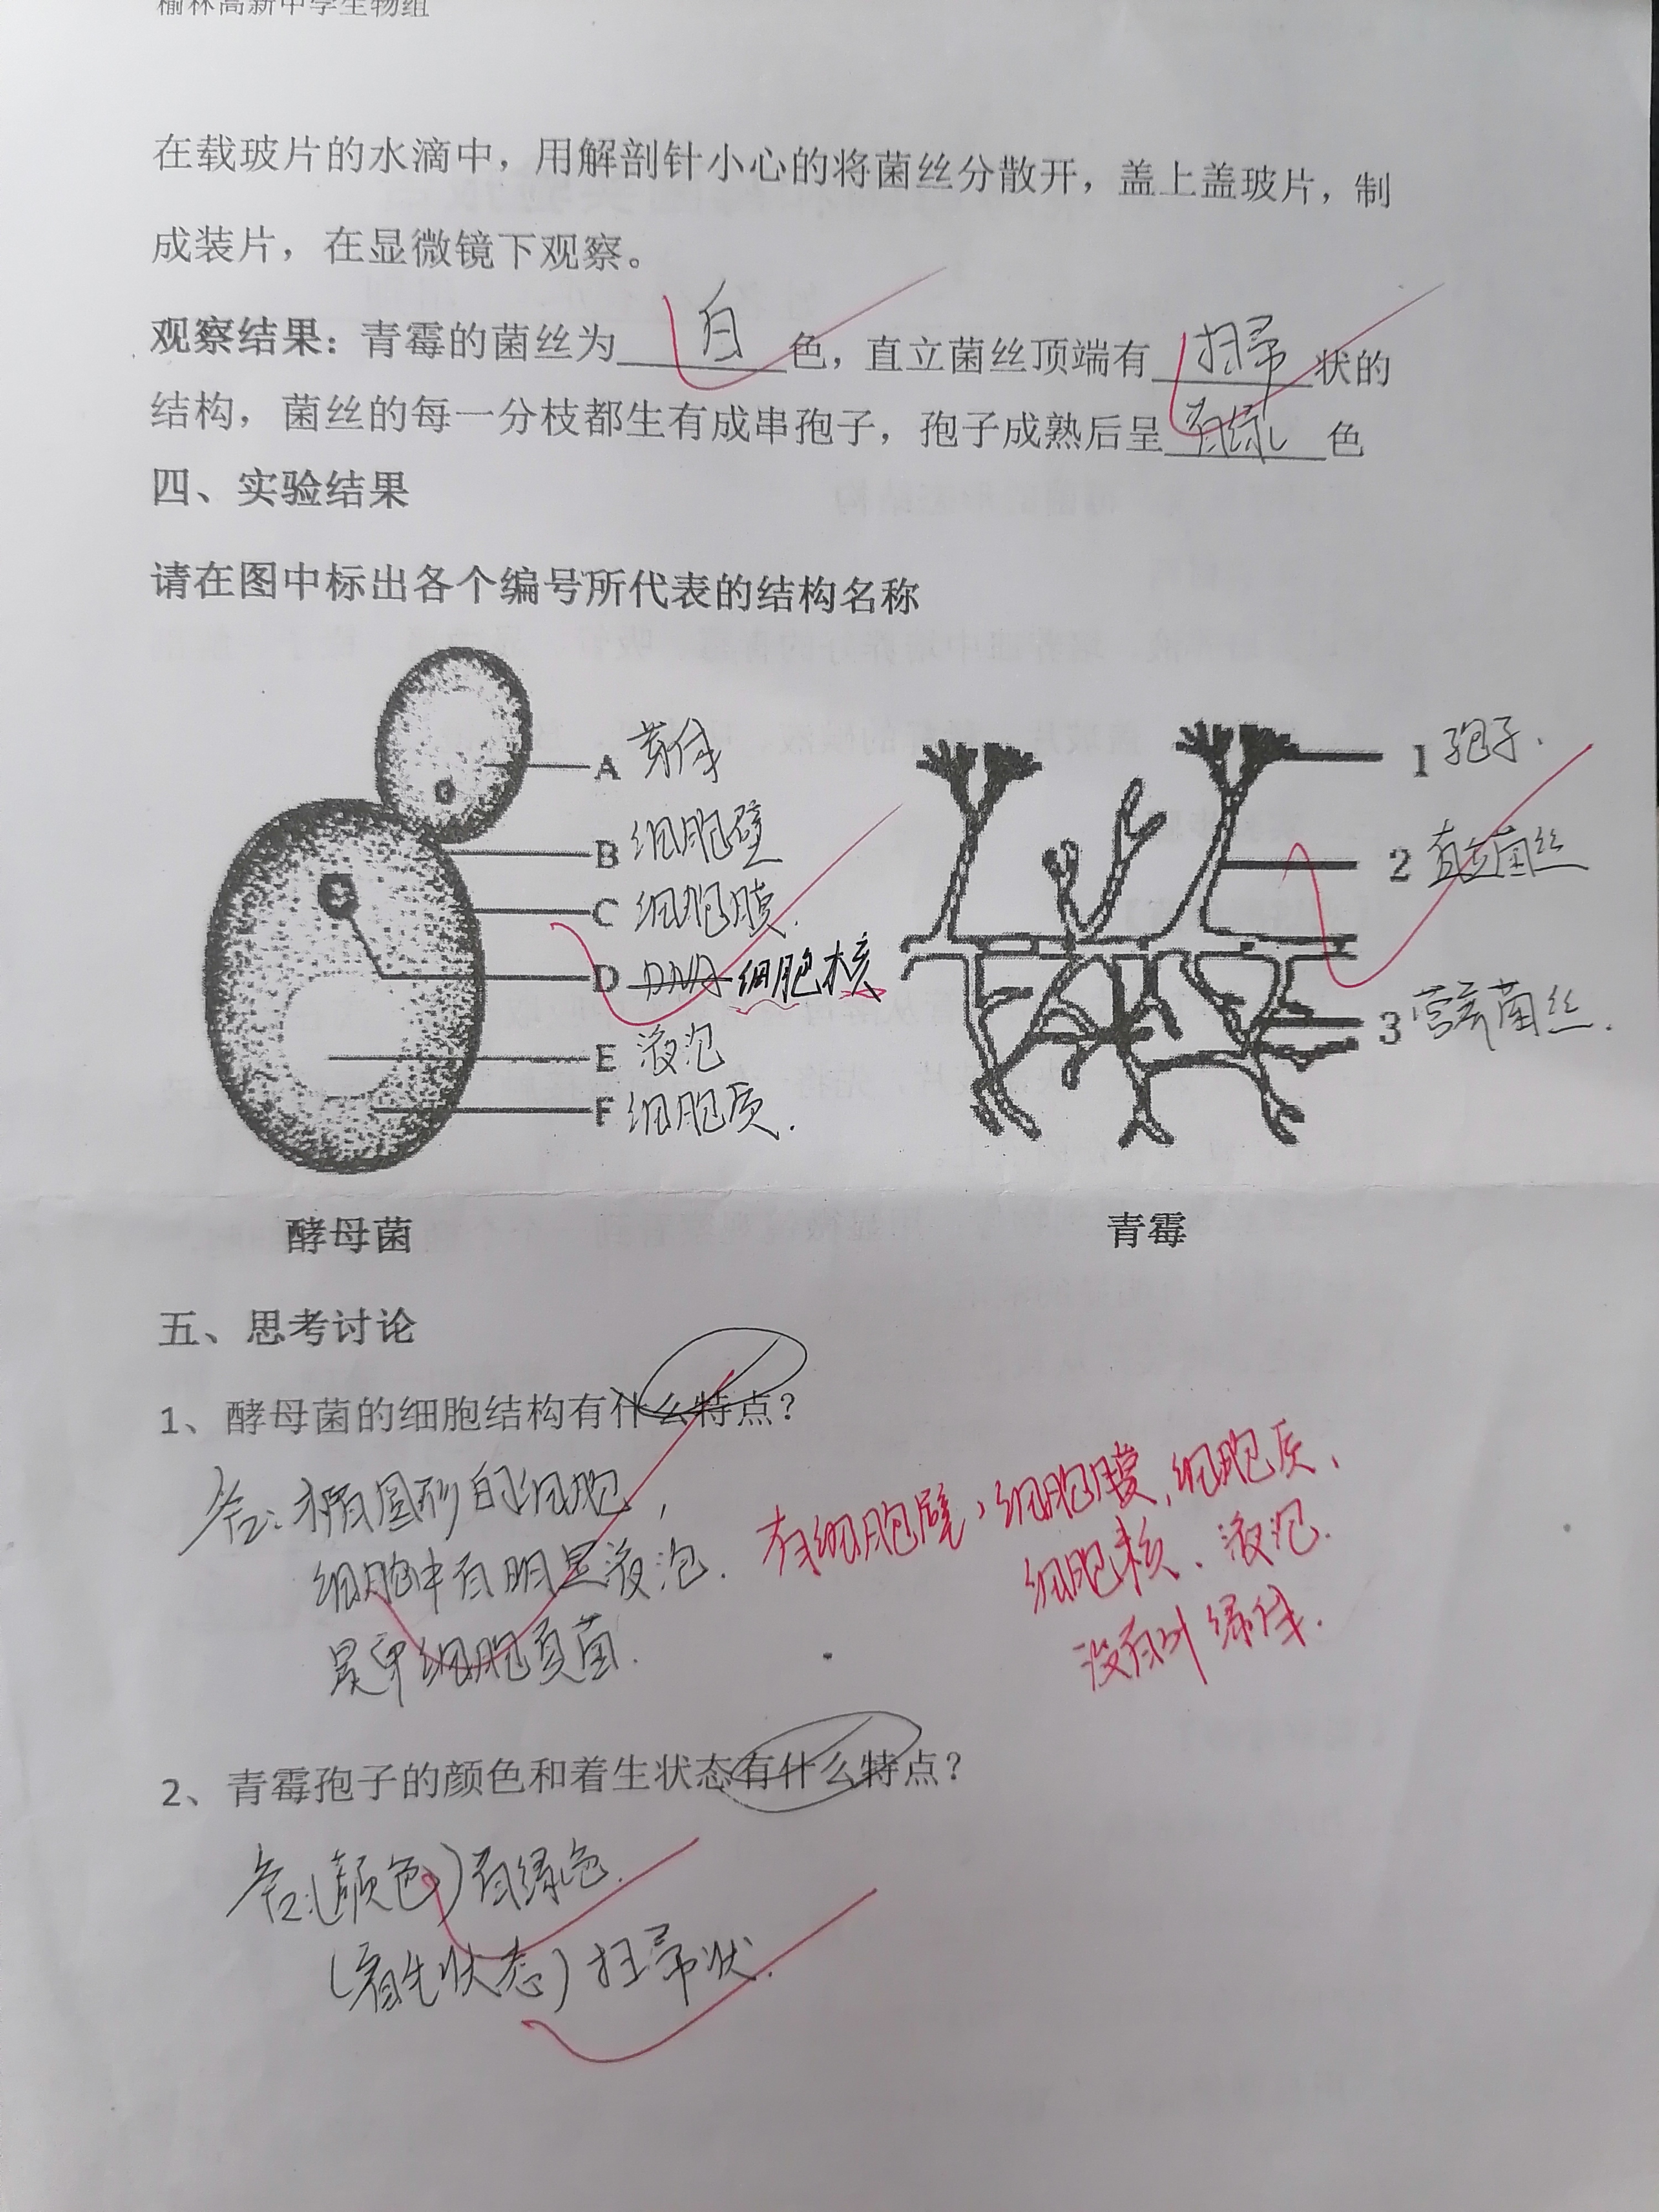 榆林高新中学生物组
在载玻片的水滴中，用解剖针小心的将菌丝分散开，盖上盖玻片，制
成装片，在显微镜下观察。
观察结果：青霉的菌丝为 白 色，直立菌丝顶端有 扫帚 状的
结构，菌丝的每一分枝都生有成串孢子，孢子成熟后呈 青绿 色
四、实验结果
请在图中标出各个编号所代表的结构名称
A 芽体
B 细胞壁
C 细胞膜.
D DNA 细胞核
E 液泡
F 细胞质.
1 孢子.
2 直立菌丝
3 营养菌丝.
酵母菌
青霉
五、思考讨论
1、酵母菌的细胞结构有什么特点？
答：椭圆形的细胞，
细胞中有明显液泡.
是单细胞真菌.
有细胞壁、细胞膜、细胞质、
细胞核、液泡.
没有叶绿体.
2、青霉孢子的颜色和着生状态有什么特点？
答：(颜色)青绿色.
(着生状态)扫帚状.